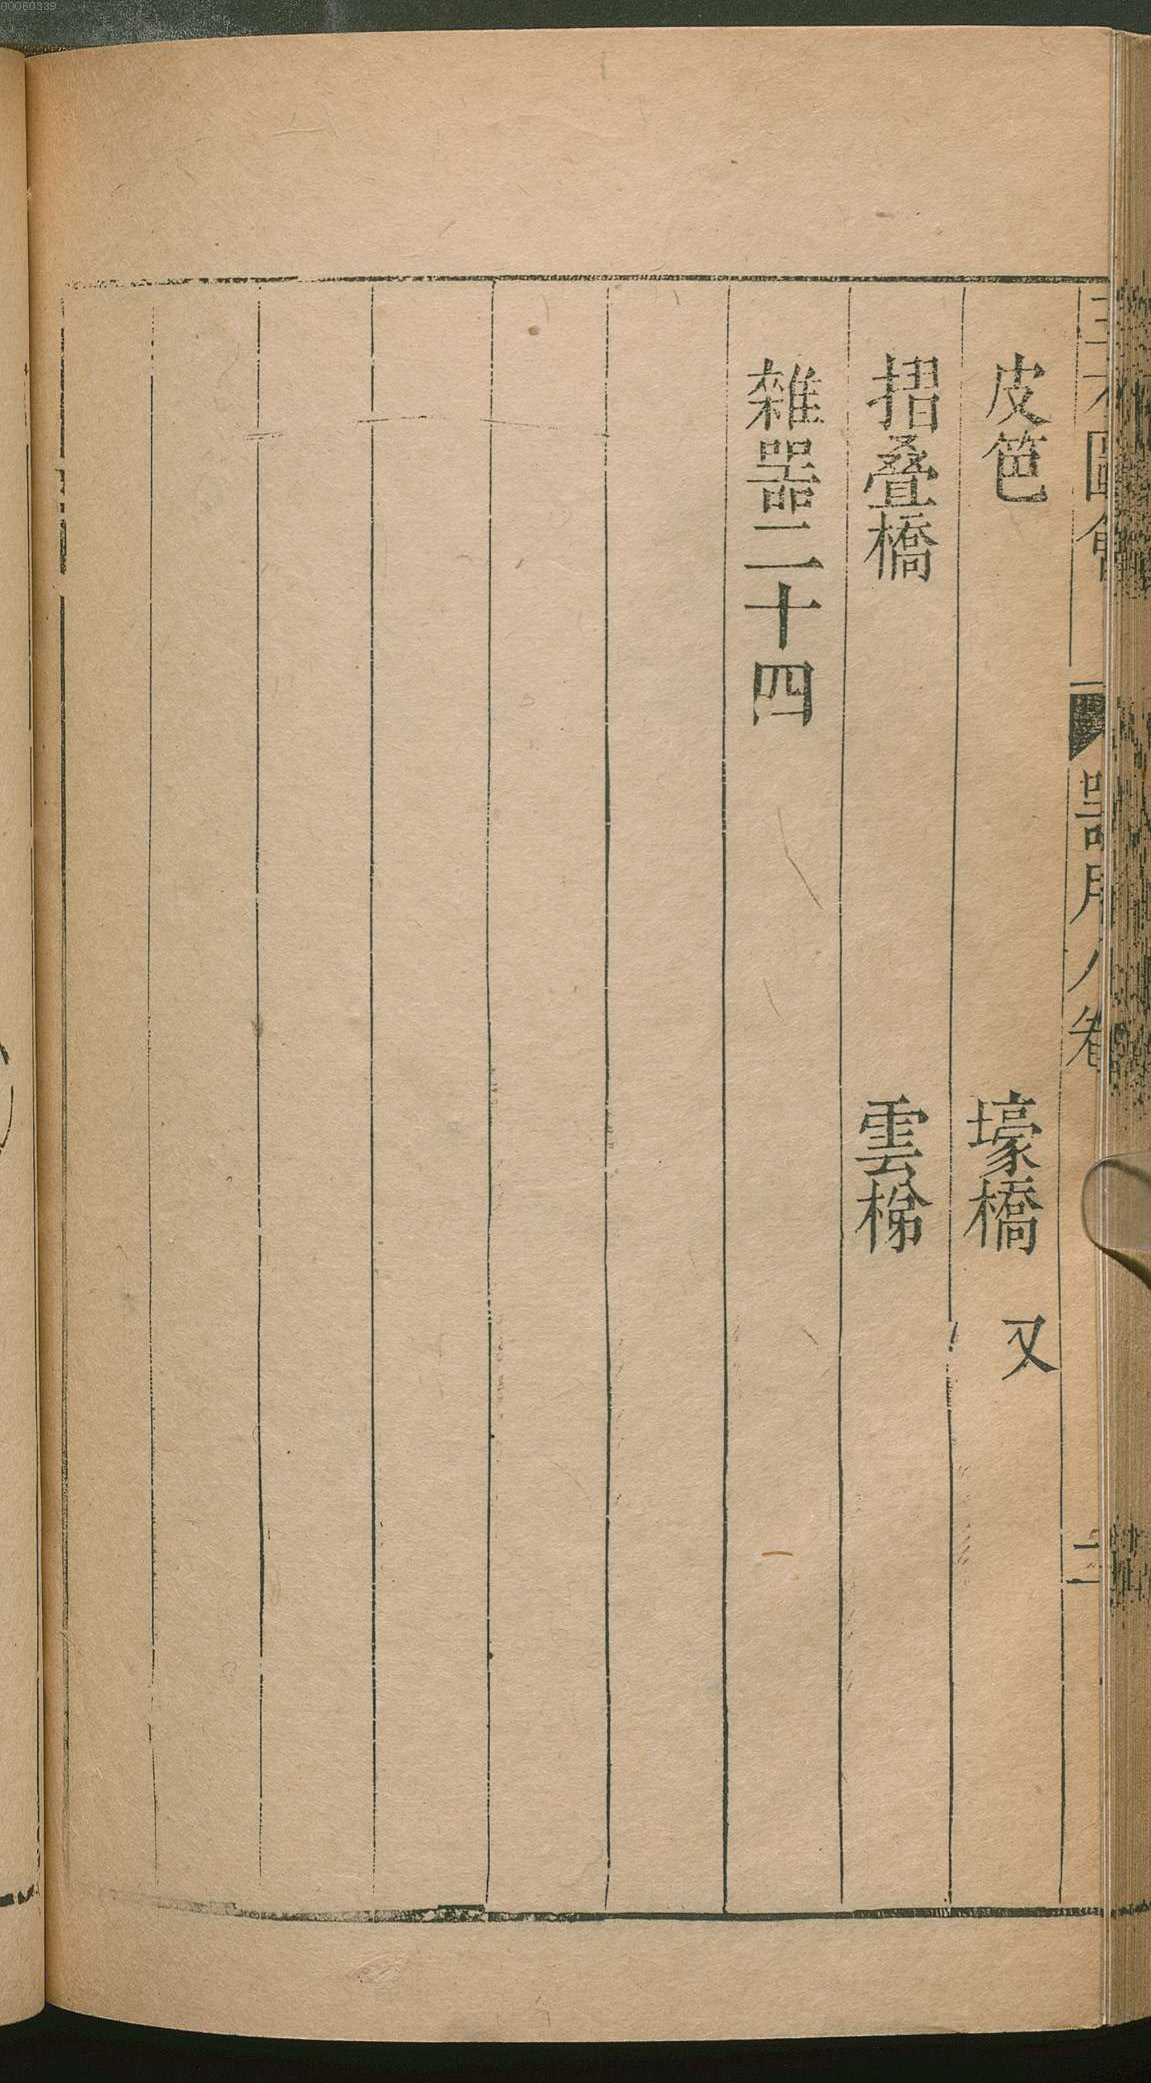 三才圖會 器用八卷 二
皮笆 壕橋 又
摺叠橋 雲梯
雜器二十四
00060339